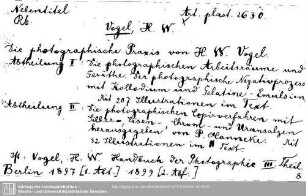 Nebentitel Art. plast. 2630.
Rb.
Vogel, H. W.
Die photographische Praxis von H. W. Vogel.
Abtheilung I: Die photographischen Arbeitsräume und
Geräthe, der photographische Negativprozess
mit Kollodium und Gelatine-Emulsion
Mit 207 Illustrationen im Text.
Abtheilung II: Die photographischen Copirverfahren mit
Silber-, Eisen-, Chrom- und Uransalzen
herausgegeben von P. Hanneke. Mit
32 Illustrationen im Text.
In: Vogel, H. W. Handbuch der Photographie III. Theil
Berlin 1897 [1. Abt.] 1899 [2. Abt.]